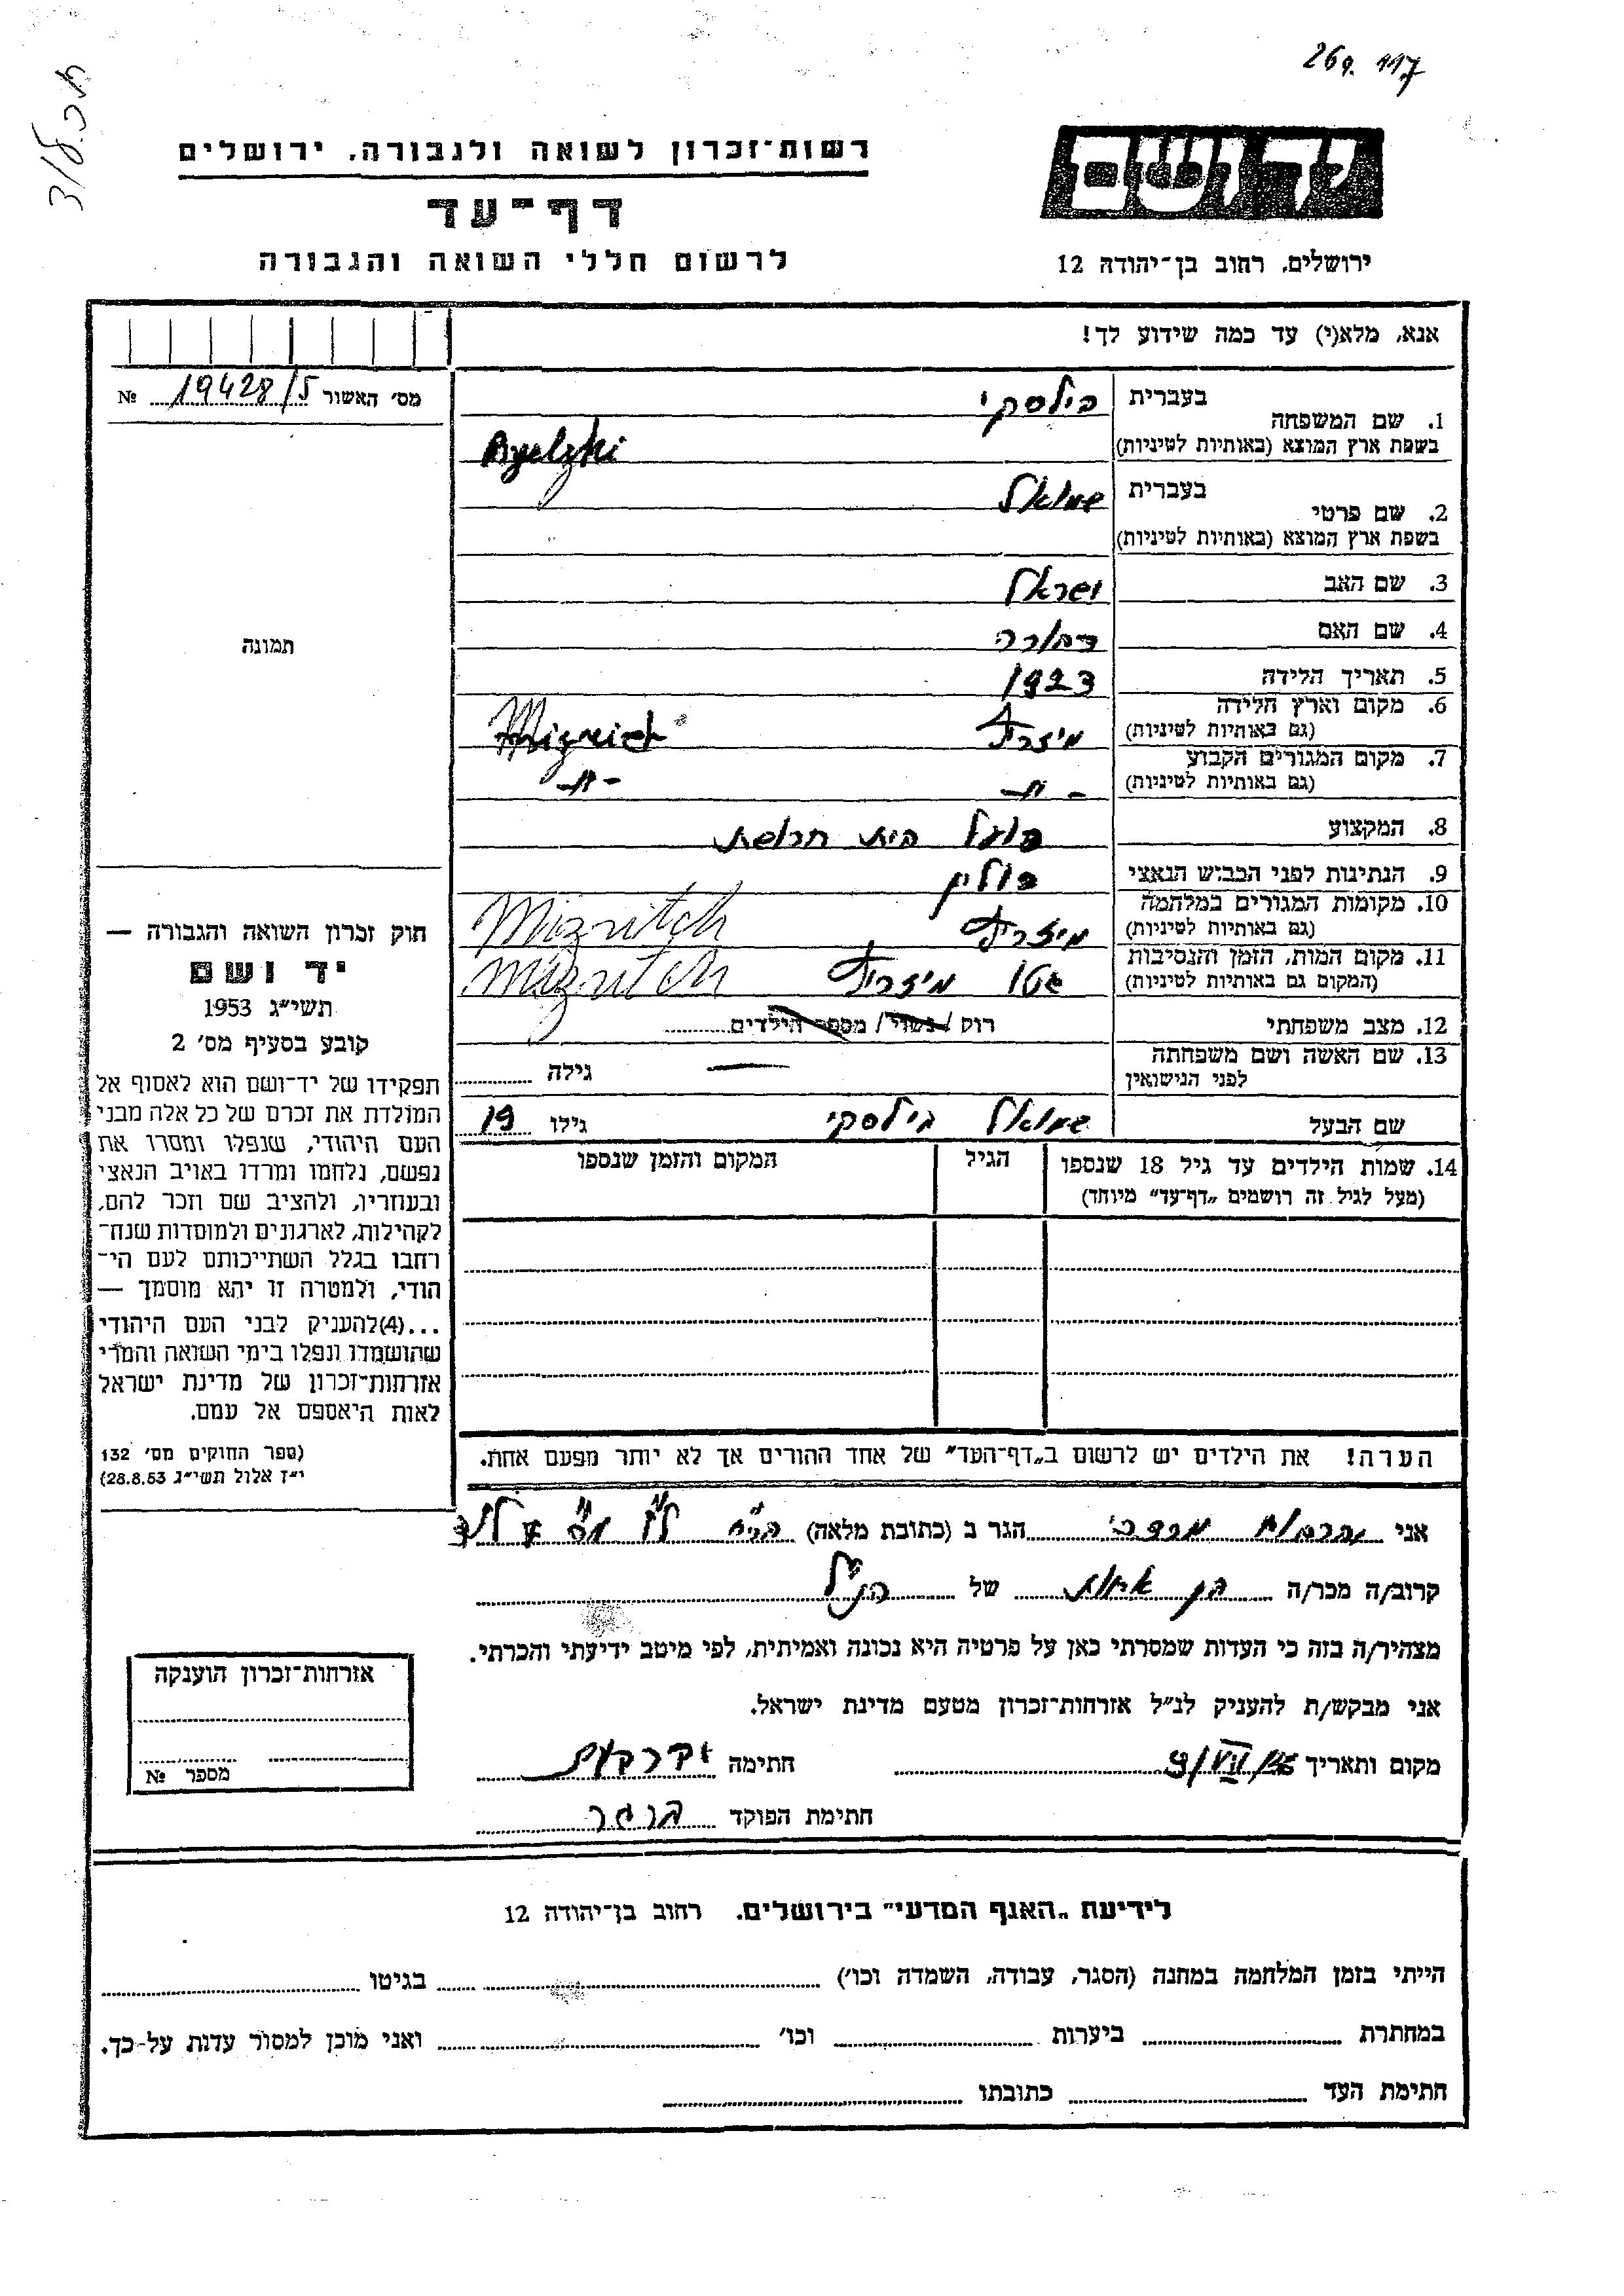 269. 117
רשות־זכרון לשואה ולגבורה, ירושלים
דף־עד
לרשום חללי השואה והגבורה
יד ושם
ירושלים, רחוב בן־יהודה 12
אנא, מלא(י) עד כמה שידוע לך!
מס׳ האשור 19428/5 №
תמונה
1. שם המשפחה בעברית בילסקי
בשפת ארץ המוצא (באותיות לטיניות)
2. שם פרטי בעברית שמואל
בשפת ארץ המוצא (באותיות לטיניות)
3. שם האב ישראל
4. שם האם דבורה
5. תאריך הלידה 1923
6. מקום וארץ הלידה
(גם באותיות לטיניות) מיזריץ
7. מקום המגורים הקבוע
(גם באותיות לטיניות) - " - - " -
8. המקצוע פועל בית חרושת
9. הנתינות לפני הכבוש הנאצי פולין
10. מקומות המגורים במלחמה
(גם באותיות לטיניות) מיזריץ Mizritch
11. מקום המות, הזמן והנסיבות
(המקום גם באותיות לטיניות) גטו מיזריץ Mizritch
12. מצב משפחתי רוק / נשוי / מספר הילדים
13. שם האשה ושם משפחתה
לפני הנישואין — גילה
שם הבעל שמואל בילסקי גילו 19
14. שמות הילדים עד גיל 18 שנספו הגיל המקום והזמן שנספו
(מעל לגיל זה רושמים „דף־עד” מיוחד)
הערה! את הילדים יש לרשום ב„דף־העד” של אחד ההורים אך לא יותר מפעם אחת.
חוק זכרון השואה והגבורה —
יד ושם
תשי״ג 1953
קובע בסעיף מס׳ 2
תפקידו של יד־ושם הוא לאסוף אל
המולדת את זכרם של כל אלה מבני
העם היהודי, שנפלו ומסרו את
נפשם, נלחמו ומרדו באויב הנאצי
ובעוזריו, ולהציב שם וזכר להם,
לקהילות, לארגונים ולמוסדות שנח־
רחבו בגלל השתייכותם לעם הי־
הודי, ולמטרה זו יהא מוסמך —
...(4)להעניק לבני העם היהודי
שהושמדו ונפלו בימי השואה והמרי
אזרחות־זכרון של מדינת ישראל
לאות היאספם אל עמם.
(ספר החוקים מס׳ 132
י״ז אלול תשי״ג 28.8.53)
אני מרדכי הגר ב (כתובת מלאה)
קרוב/ה מכר/ה בן אחות של הנ״ל
מצהיר/ה בזה כי העדות שמסרתי כאן על פרטיה היא נכונה ואמיתית, לפי מיטב ידיעתי והכרתי.
אני מבקש/ת להעניק לנ״ל אזרחות־זכרון מטעם מדינת ישראל.
מקום ותאריך חתימה
חתימת הפוקד
אזרחות־זכרון הוענקה
מספר №
לידיעת „האגף המדעי” בירושלים. רחוב בן־יהודה 12
הייתי בזמן המלחמה במחנה (הסגר, עבודה, השמדה וכו׳) בגיטו
במחתרת ביערות וכו׳ ואני מוכן למסור עדות על־כך.
חתימת העד כתובתו